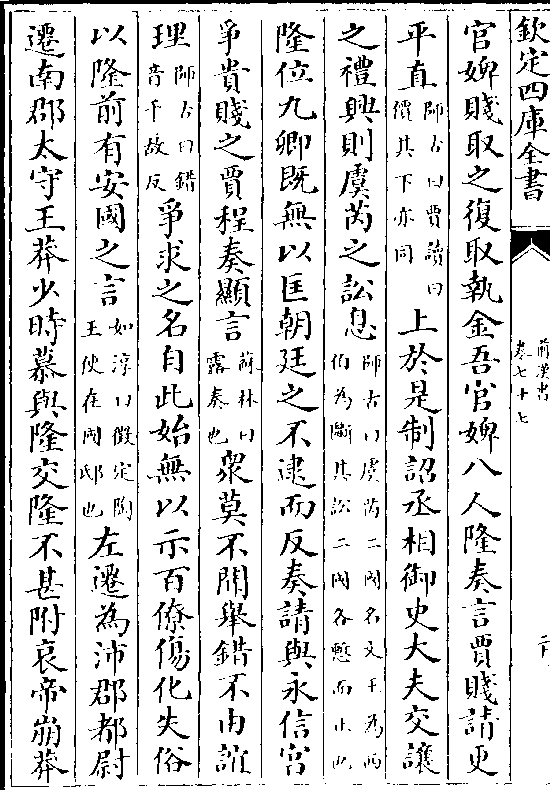 欽定四庫全書
前漢書
卷七十七
官婢賤取之復取執金吾官婢八人隆奏言賈賤請更
平直師古曰賈讀曰價其下亦同上於是制詔丞相御史大夫交讓
之禮興則虞芮之訟息師古曰虞芮二國名文王為西伯為斷其訟二國各慙而止也
隆位九卿既無以匡朝廷之不逮而反奏請與永信宫
爭貴賤之賈程奏顯言蘇林曰露奏也衆莫不聞舉錯不由誼
理師古曰錯音千故反爭求之名自此始無以示百僚傷化失俗
以隆前有安國之言如淳曰徵定陶王使在國邸也左遷為沛郡都尉
遷南郡太守王莽少時慕與隆交隆不甚附哀帝崩莽